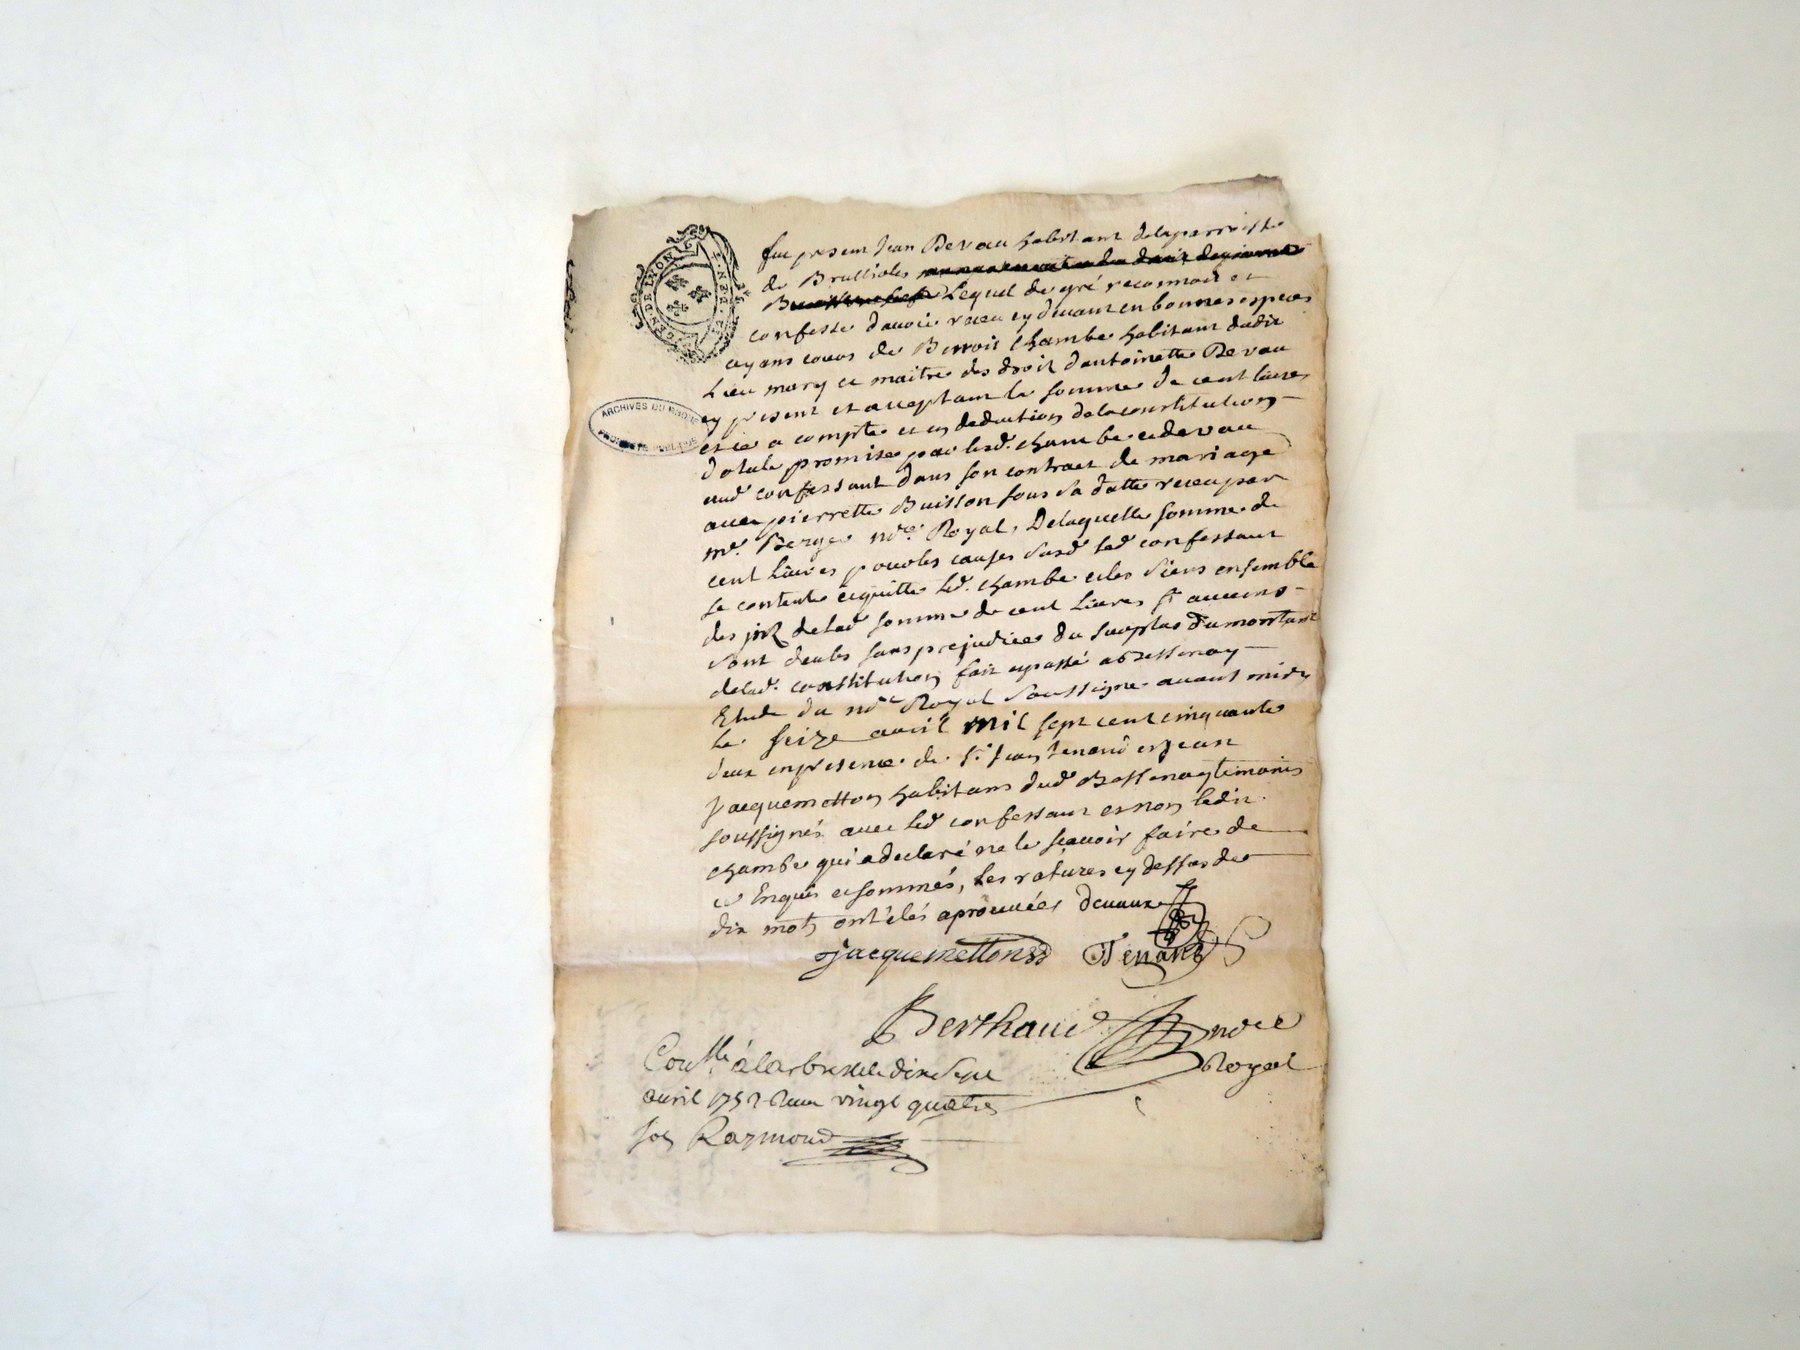 GEN DE LYON
ARCHIVES DU RHONE
PROPRIETE PUBLIQUE
fut present Jean Devau habitant de la parroisse
de Brussioles
Lequel de gré reconnoit et
confesse d'avoir receu cy devant en bonnes especes
ayans cours de Benoit Chambe habitant dudit
Lieu mary et maitre des droit d'antoinette Devau
cy present et acceptant la somme de cent livres
et ce a compte et en deduction de la constitution
dotale promise par lesd. chambe et devau
aud confessant dans son contract de mariage
avec pierrette Buisson sous sa datte receu par
me. Berge nore. Royal, De laquelle somme de
cent Livres pour les causes susd led confessant
se contente et quitte led. chambe et les siens ensemble
des de lad somme de cent Livres sy aucuns
sont deubs sans prejudice du surplus du montant
de lad. constitution fait et passé a Bessenay
Etude du nore Royal soussigne avant midy
Le seize avril mil sept cent cinquante
deux en presence de sr. Jean Tenand et Jean
Jacquemetton habitans dud Bessenay temoins
soussignés avec led confessant et non ledit
chambe qui a declaré ne le scavoir faire de
ce Enquis et sommés, Les ratures cy dessus de
dix mots ont étés aprouvées devaux
Jacquemetton Tenand
Berthaud nore
Royal
Conllé a Larbresle dix sept
avril 1752 Reçu vingt quatre
sols Raymond